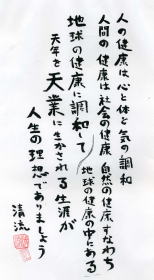 人の健康は心と体と気の調和
人間の健康は社会の健康 自然の健康すなわち
地球の健康の中にある
地球の健康に調和して
天寿を天業に生かされる生涯が
人生の理想でありましょう
清流